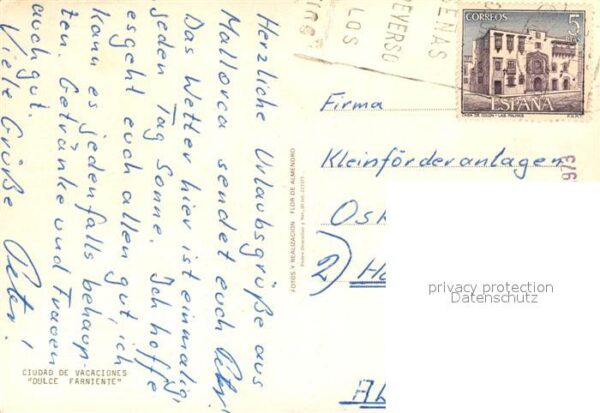 Herzliche Urlaubsgrüße aus
Mallorca sendet euch Peter!
Das Wetter hier ist einmalig,
jeden Tag Sonne. Ich hoffe
es geht euch allen gut, ich
kann es jedenfalls behaup-
ten. Getränke und Frauen
auch gut.
Viele Grüße Peter!
CIUDAD DE VACACIONES
"DULCE FARNIENTE"
FOTOS Y REALIZACION FLOR DE ALMENDRO
REVERSO
LOS
CORREOS
5
CASA DE COLON - LAS PALMAS
ESPAÑA
Firma
Kleinförderanlagen
privacy protection
Datenschutz